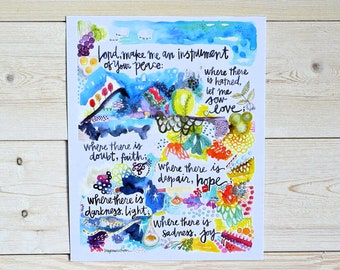 Lord, make me an instrument
of your peace:
where there
is hatred,
let me
sow
love;
where there is
doubt, faith;
where there is
despair, hope
where there is
darkness, light,
where there is
sadness, joy